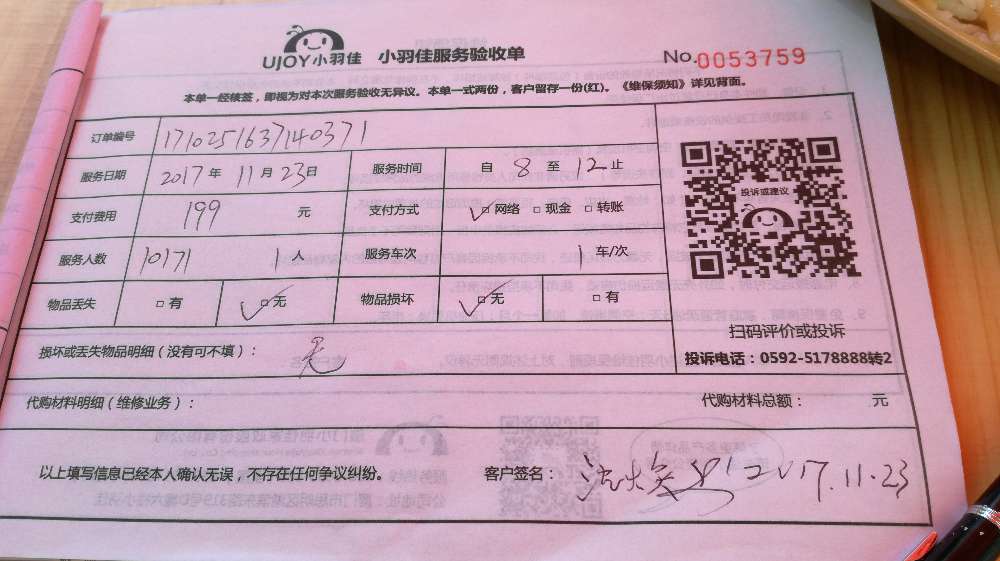 UJOY小羽佳 小羽佳服务验收单 No.0053759
本单一经续签，即视为对本次服务验收无异议。本单一式两份，客户留存一份(红)。《维保须知》详见背面。
订单编号 1710251637140371
服务日期 2017年 11月23日 服务时间 自 8 至 12 止
支付费用 199 元 支付方式 ☑网络 □现金 □转账
服务人数 10171 1人 服务车次 1车/次
物品丢失 □有 ☑无 物品损坏 ☑无 □有
投诉或建议
扫码评价或投诉
投诉电话：0592-5178888转2
损坏或丢失物品明细（没有可不填）： 无
代购材料明细（维修业务）： 代购材料总额： 元
以上填写信息已经本人确认无误，不存在任何争议纠纷。 客户签名： 2017.11.23